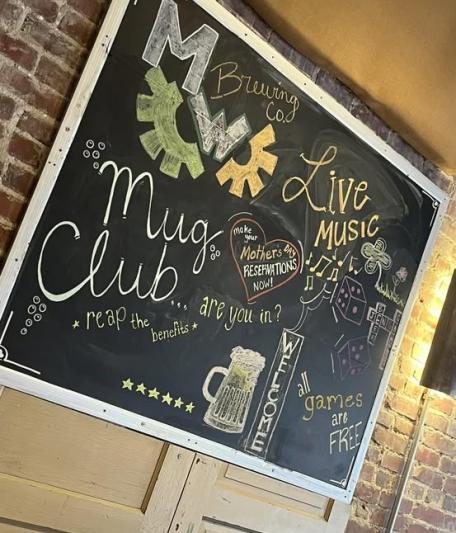 M
Brewing
Co.
W
Live
Music
Mug
Club...
make
your
Mothers Day
RESERVATIONS
NOW!
are you in?
reap the
benefits
WELCOME
all
games
are
FREE